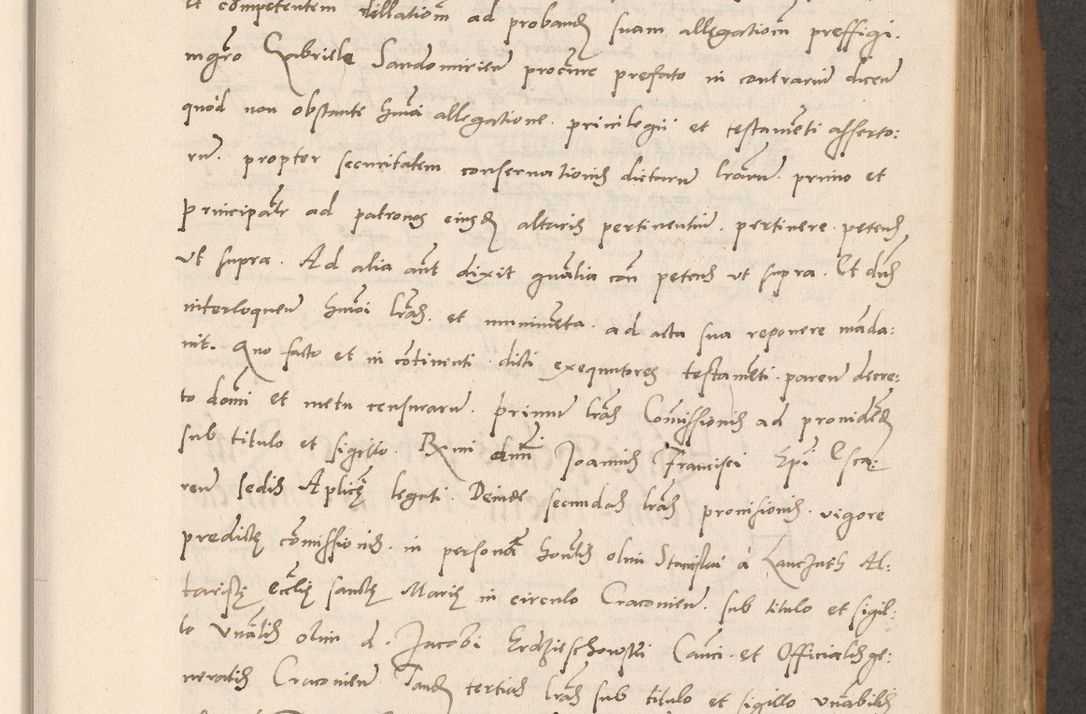 et competentem dellatiom ad proband suam allegatiom preffigi.
mgro Gabriele Sandomirien procure prefato in contrarium dicen
quod non obstante hmoi allegatione privilegii et testameti asserto:
rum. propter securitatem conservationis dictarum lrarum. primo et
principatr ad patronos eiusd altaris pertinentium. pertinere. petens
ut supra. Ad alia aut dixit gnalia con petens ut supra. Et dns
interloquen hmoi lras. et munimeta. ad acta sua reponere mada:
vit. Quo facto et in cotinenti. dicti exequutores testameti. paren decre:
to domi et metu censurarum. primum lras Comissionis ad providend
sub titulo et sigillo. Rmi dmi Joannis Francisci Epi Sca:
ren sedis Aplice legati. Deinde secundas lras provisionis. vigore
predicte comissionis. in persona honlis olim Stanislai a Lancz Al:
tariste ecclie sancte Marie in circulo Cracovien. sub titulo et sigil:
lo vnalis olim d. Jacobi Erdzieschowski Canci. et Officialis ge:
neralis Cracovien. Tand tertias lras sub titulo et sigillo vnabilis